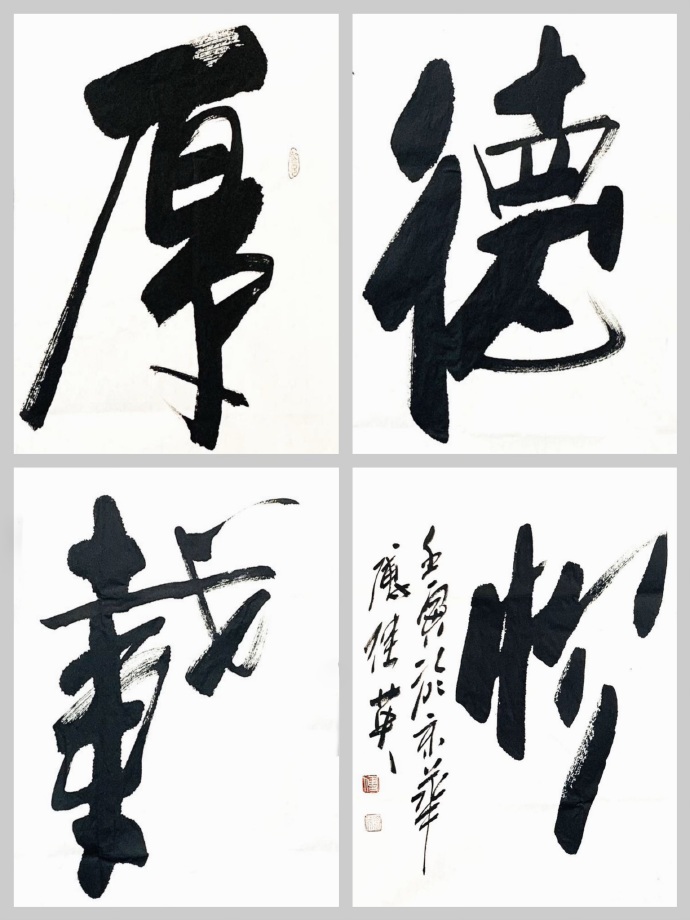 厚
德
載
物
壬寅於京華
康佳英